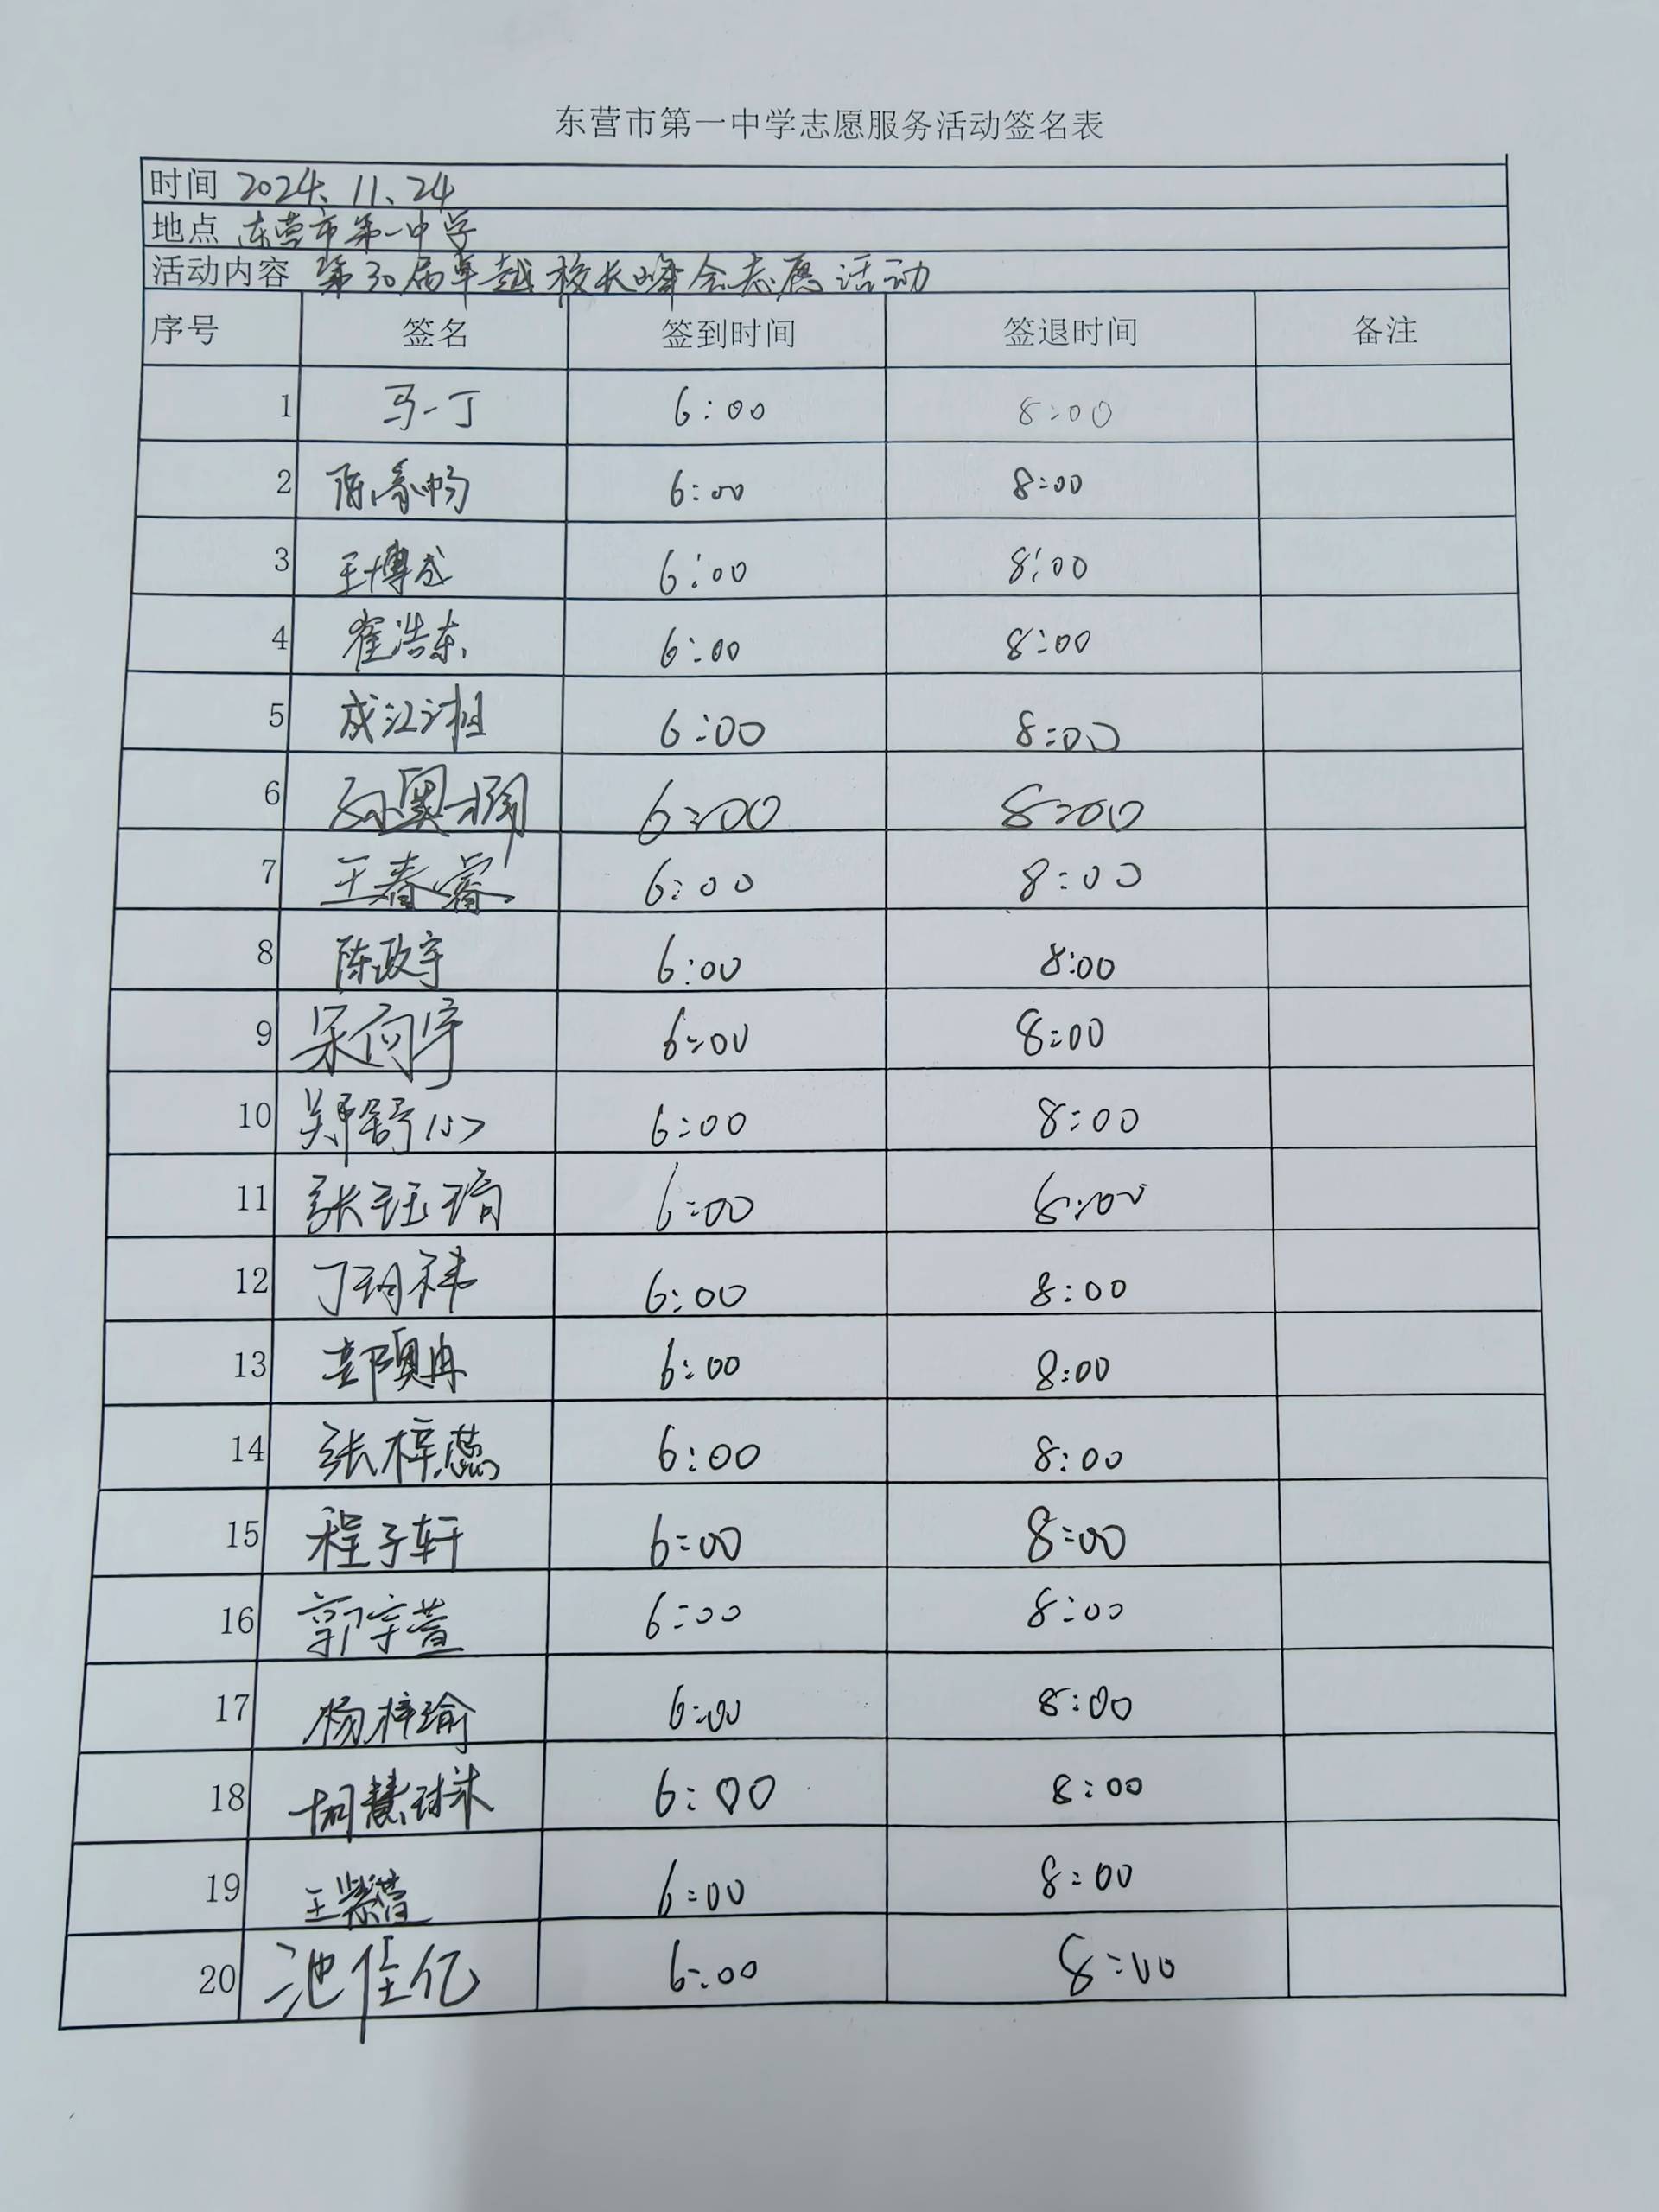 东营市第一中学志愿服务活动签名表
时间 2024、11、24
地点 东营市第一中学
活动内容 第30届卓越校长峰会志愿活动
序号 签名 签到时间 签退时间 备注
1 马一丁 6:00 8:00
2 6:00 8:00
3 王博成 6:00 8:00
4 崔浩东 6:00 8:00
5 成江湘 6:00 8:00
6 孙奥 6:00 8:00
7 王春睿 6:00 8:00
8 陈政宇 6:00 8:00
9 宋向宇 6:00 8:00
10 郑舒心 6:00 8:00
11 张钰琦 6:00 8:00
12 丁玥祎 6:00 8:00
13 奥冉 6:00 8:00
14 张梓蕊 6:00 8:00
15 程子轩 6:00 8:00
16 郭宗萱 6:00 8:00
17 杨梓瑜 6:00 8:00
18 胡慧琳 6:00 8:00
19 王紫萱 6:00 8:00
20 池佳亿 6:00 8:00